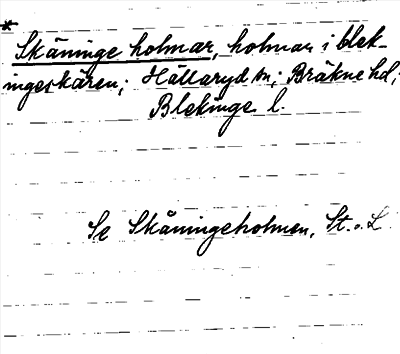 *
Skäninge holmar, holmar i blek-
ingeskären; Hällaryd sn; Bräkne hd;
Blekinge l.
Se Skäningeholmen, St. o. L